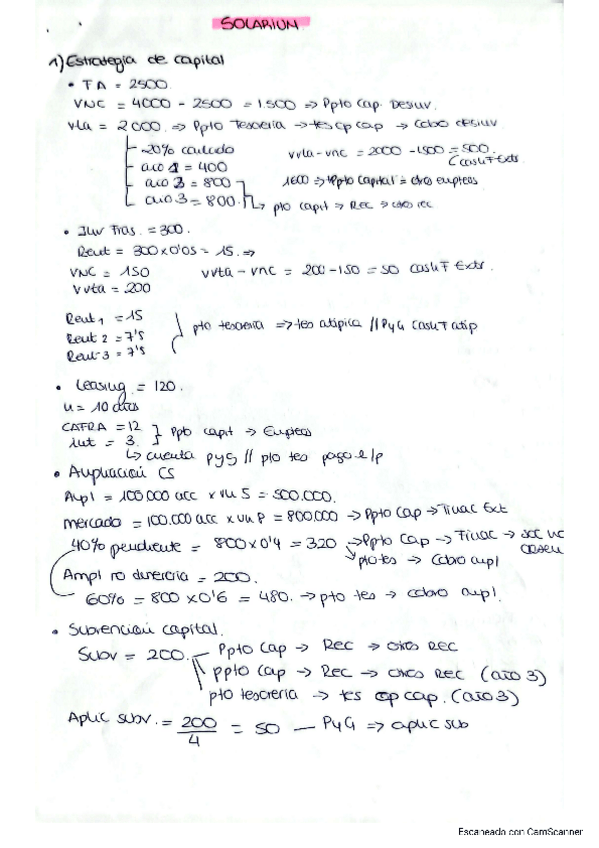 SOLARIUM
1) Estrategia de capital
• TA = 2500.
VNC = 4000 - 2500 = 1.500 => Ppto Cap. Desinv.
Vta = 2000. => Ppto Tesoreria → tes op cap → Cobro desinv
20% contado
año 1 = 400
año 2 = 800
año 3 = 800.
vvta - vnc = 2000 - 1500 = 500.
Cash F Extr.
1600 => Ppto Capital = otros empleos
pto capit → Rec → otros rec
• Inv Fras. = 300.
Rent = 300 x 0'05 = 15. =>
VNC = 150
V vta = 200
vvta - vnc = 200 - 150 = 50 Cash F Extr.
Rent 1 = 15
Rent 2 = 7'5
Rent 3 = 7'5
pto tesoreria => tes atipica // PyG Cash F atip
• Leasing = 120.
n = 10 años
CAFRA = 12
Int = 3.
Ppto capit → Empleos
↳ cuenta PyG // pto teo pago e/p
• Ampliación CS
Ampl = 100.000 acc x vn 5 = 500.000.
mercado = 100.000 acc x vm 8 = 800.000 → Ppto Cap → Financ Ext
40% pendiente = 800 x 0'4 = 320 → Ppto Cap → Financ →
pto tes → Cobro ampl
Ampl no dineraria = 200.
60% = 800 x 0'6 = 480. → pto tes → cobro ampl.
• Subvención capital.
Subv = 200.
Ppto Cap → Rec → otros rec
ppto Cap → Rec → otros Rec (año 3)
pto tesoreria → tes op cap. (año 3)
Aplic subv. = 200/4 = 50 — PyG => aplic sub
Escaneado con CamScanner